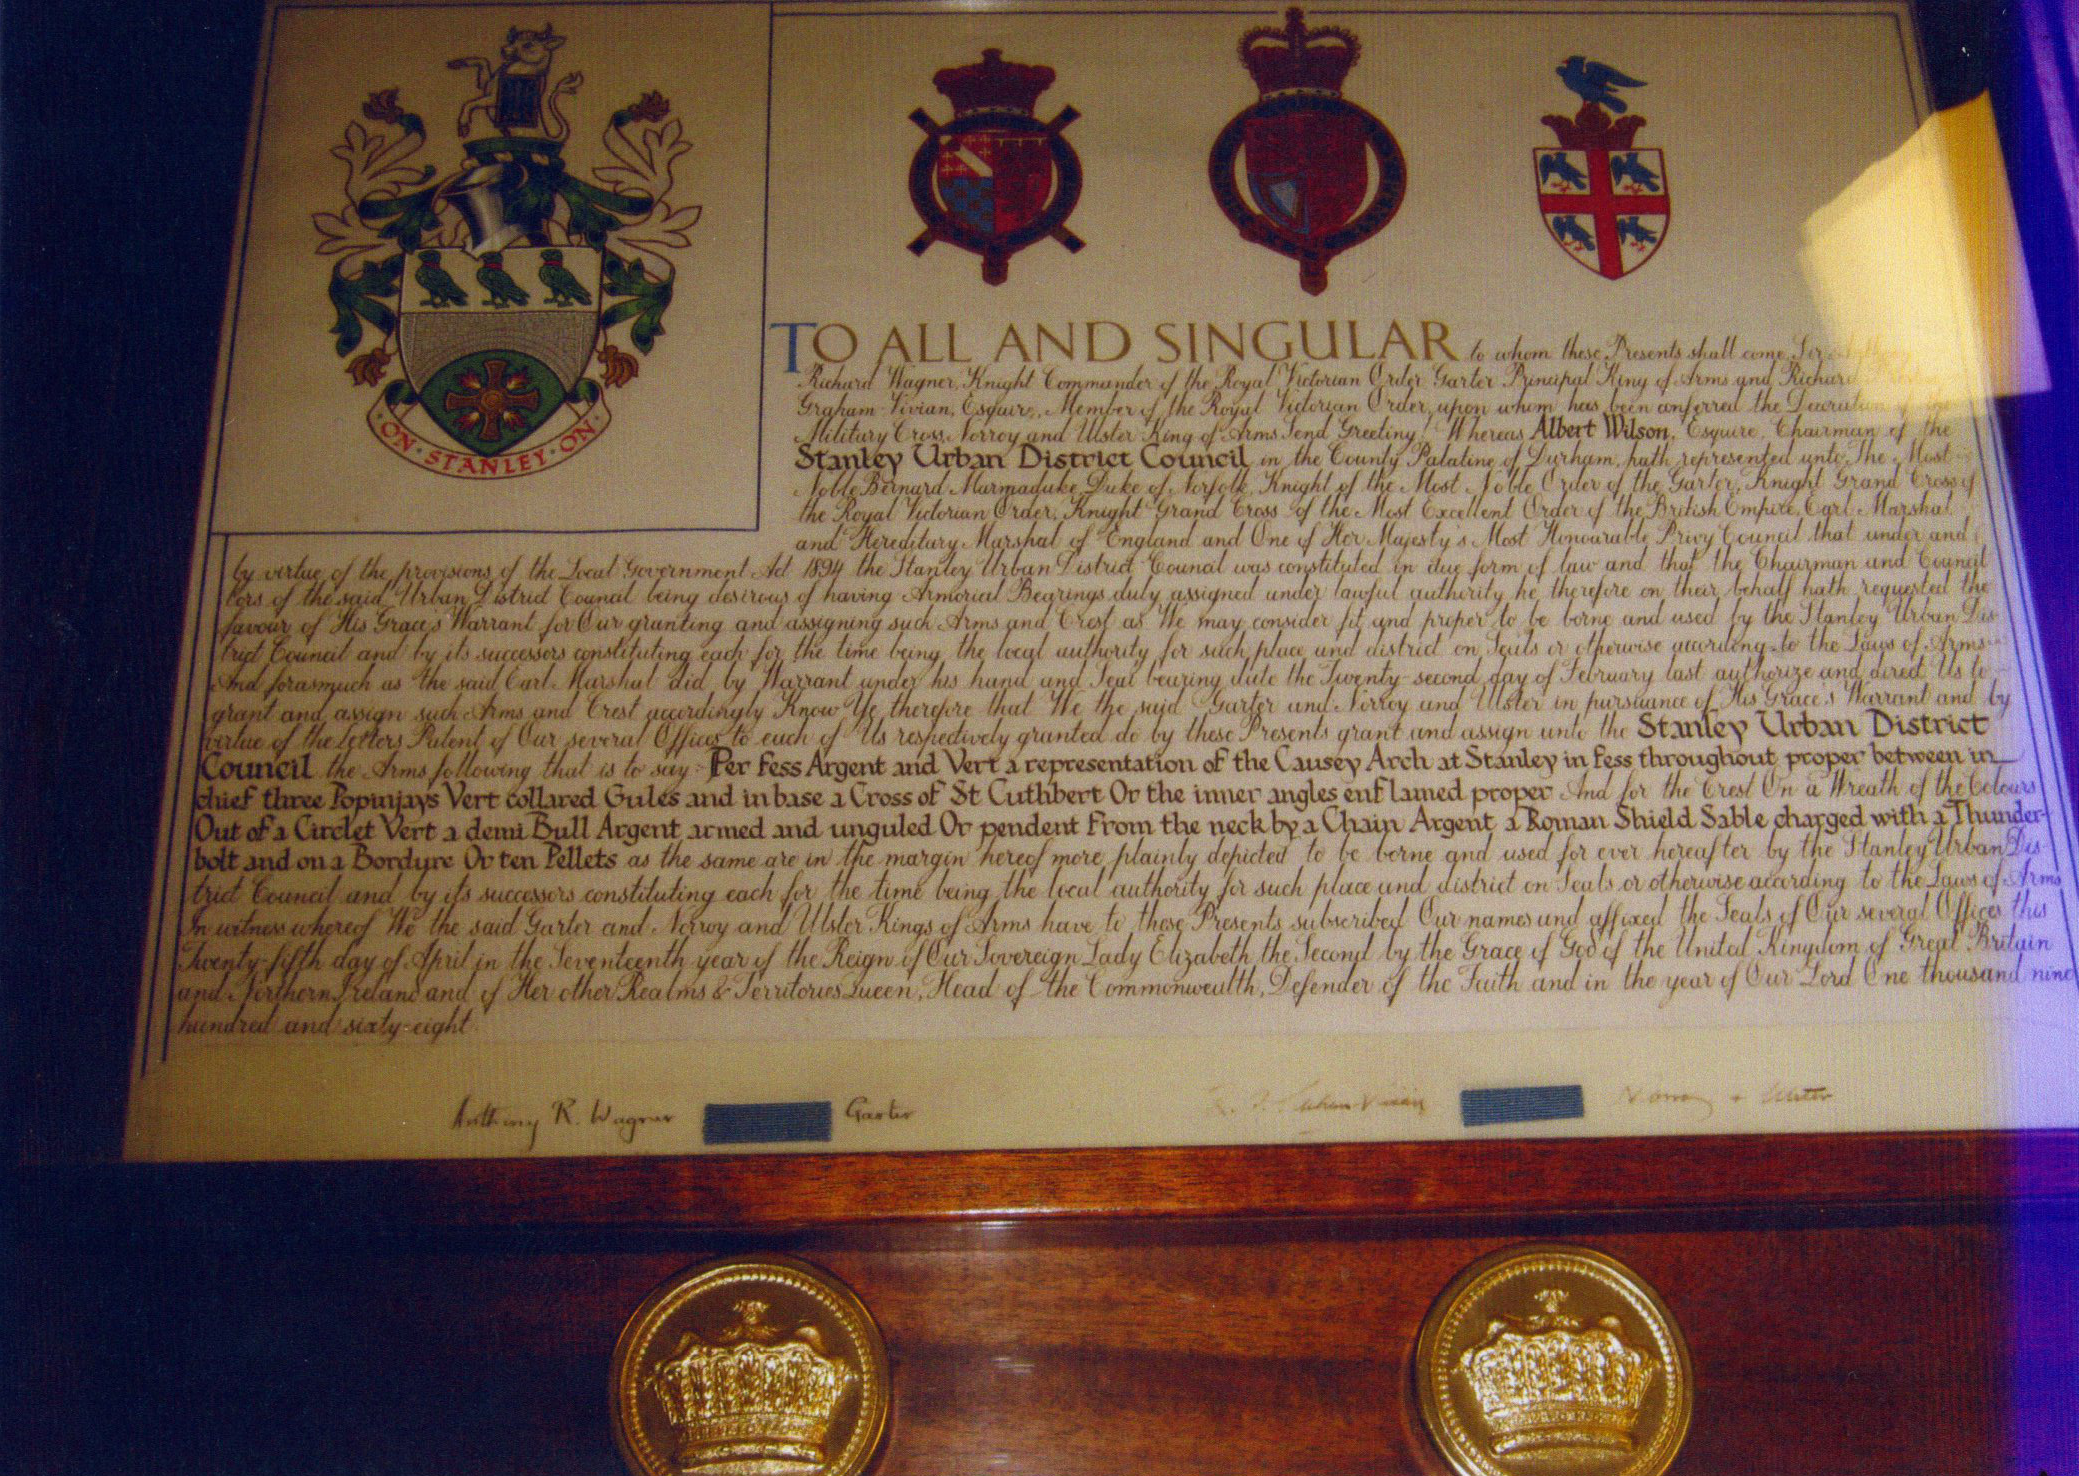 ON · STANLEY · ON ·
TO ALL AND SINGULAR to whom these Presents shall come Sir
Richard Wagner, Knight Commander of the Royal Victorian Order Garter Principal King of Arms and Richard
Graham-Vivian, Esquire, Member of the Royal Victorian Order, upon whom has been conferred the Decoration of the
Military Cross, Norroy and Ulster King of Arms Send Greeting! Whereas Albert Wilson, Esquire, Chairman of the
Stanley Urban District Council in the County Palatine of Durham, hath represented unto The Most
Noble Bernard Marmaduke, Duke of Norfolk, Knight of the Most Noble Order of the Garter, Knight Grand Cross of
the Royal Victorian Order, Knight Grand Cross of the Most Excellent Order of the British Empire, Earl Marshal
and Hereditary Marshal of England and One of Her Majesty's Most Honourable Privy Council that under and
by virtue of the provisions of the Local Government Act 1894 the Stanley Urban District Council was constituted in due form of law and that the Chairman and Council
lors of the said Urban District Council being desirous of having Armorial Bearings duly assigned under lawful authority he therefore on their behalf hath requested the
favour of His Grace's Warrant for Our granting and assigning such Arms and Crest as We may consider fit and proper to be borne and used by the Stanley Urban Dis-
trict Council and by its successors constituting each for the time being the local authority for such place and district on Seals or otherwise according to the Laws of Arms
And forasmuch as the said Earl Marshal did by Warrant under his hand and Seal bearing date the Twenty-second day of February last authorize and direct Us to
grant and assign such Arms and Crest accordingly Know Ye therefore that We the said Garter and Norroy and Ulster in pursuance of His Grace's Warrant and by
virtue of the Letters Patent of Our several Offices to each of Us respectively granted do by these Presents grant and assign unto the Stanley Urban District
Council the Arms following that is to say:- Per fess Argent and Vert a representation of the Causey Arch at Stanley in fess throughout proper between in
chief three Popinjays Vert collared Gules and in base a Cross of St Cuthbert Or the inner angles enflamed proper And for the Crest On a Wreath of the Colours
Out of a Circlet Vert a demi Bull Argent armed and unguled Or pendent from the neck by a Chain Argent a Roman Shield Sable charged with a Thunder-
bolt and on a Bordure Or ten Pellets as the same are in the margin hereof more plainly depicted to be borne and used for ever hereafter by the Stanley Urban Dis-
trict Council and by its successors constituting each for the time being the local authority for such place and district on Seals or otherwise according to the Laws of Arms
In witness whereof We the said Garter and Norroy and Ulster Kings of Arms have to these Presents subscribed Our names and affixed the Seals of Our several Offices this
Twenty-fifth day of April in the Seventeenth year of the Reign of Our Sovereign Lady Elizabeth the Second by the Grace of God of the United Kingdom of Great Britain
and Northern Ireland and of Her other Realms & Territories Queen, Head of the Commonwealth, Defender of the Faith and in the year of Our Lord One thousand nine
hundred and sixty-eight.
Anthony R. Wagner Garter Norroy & Ulster